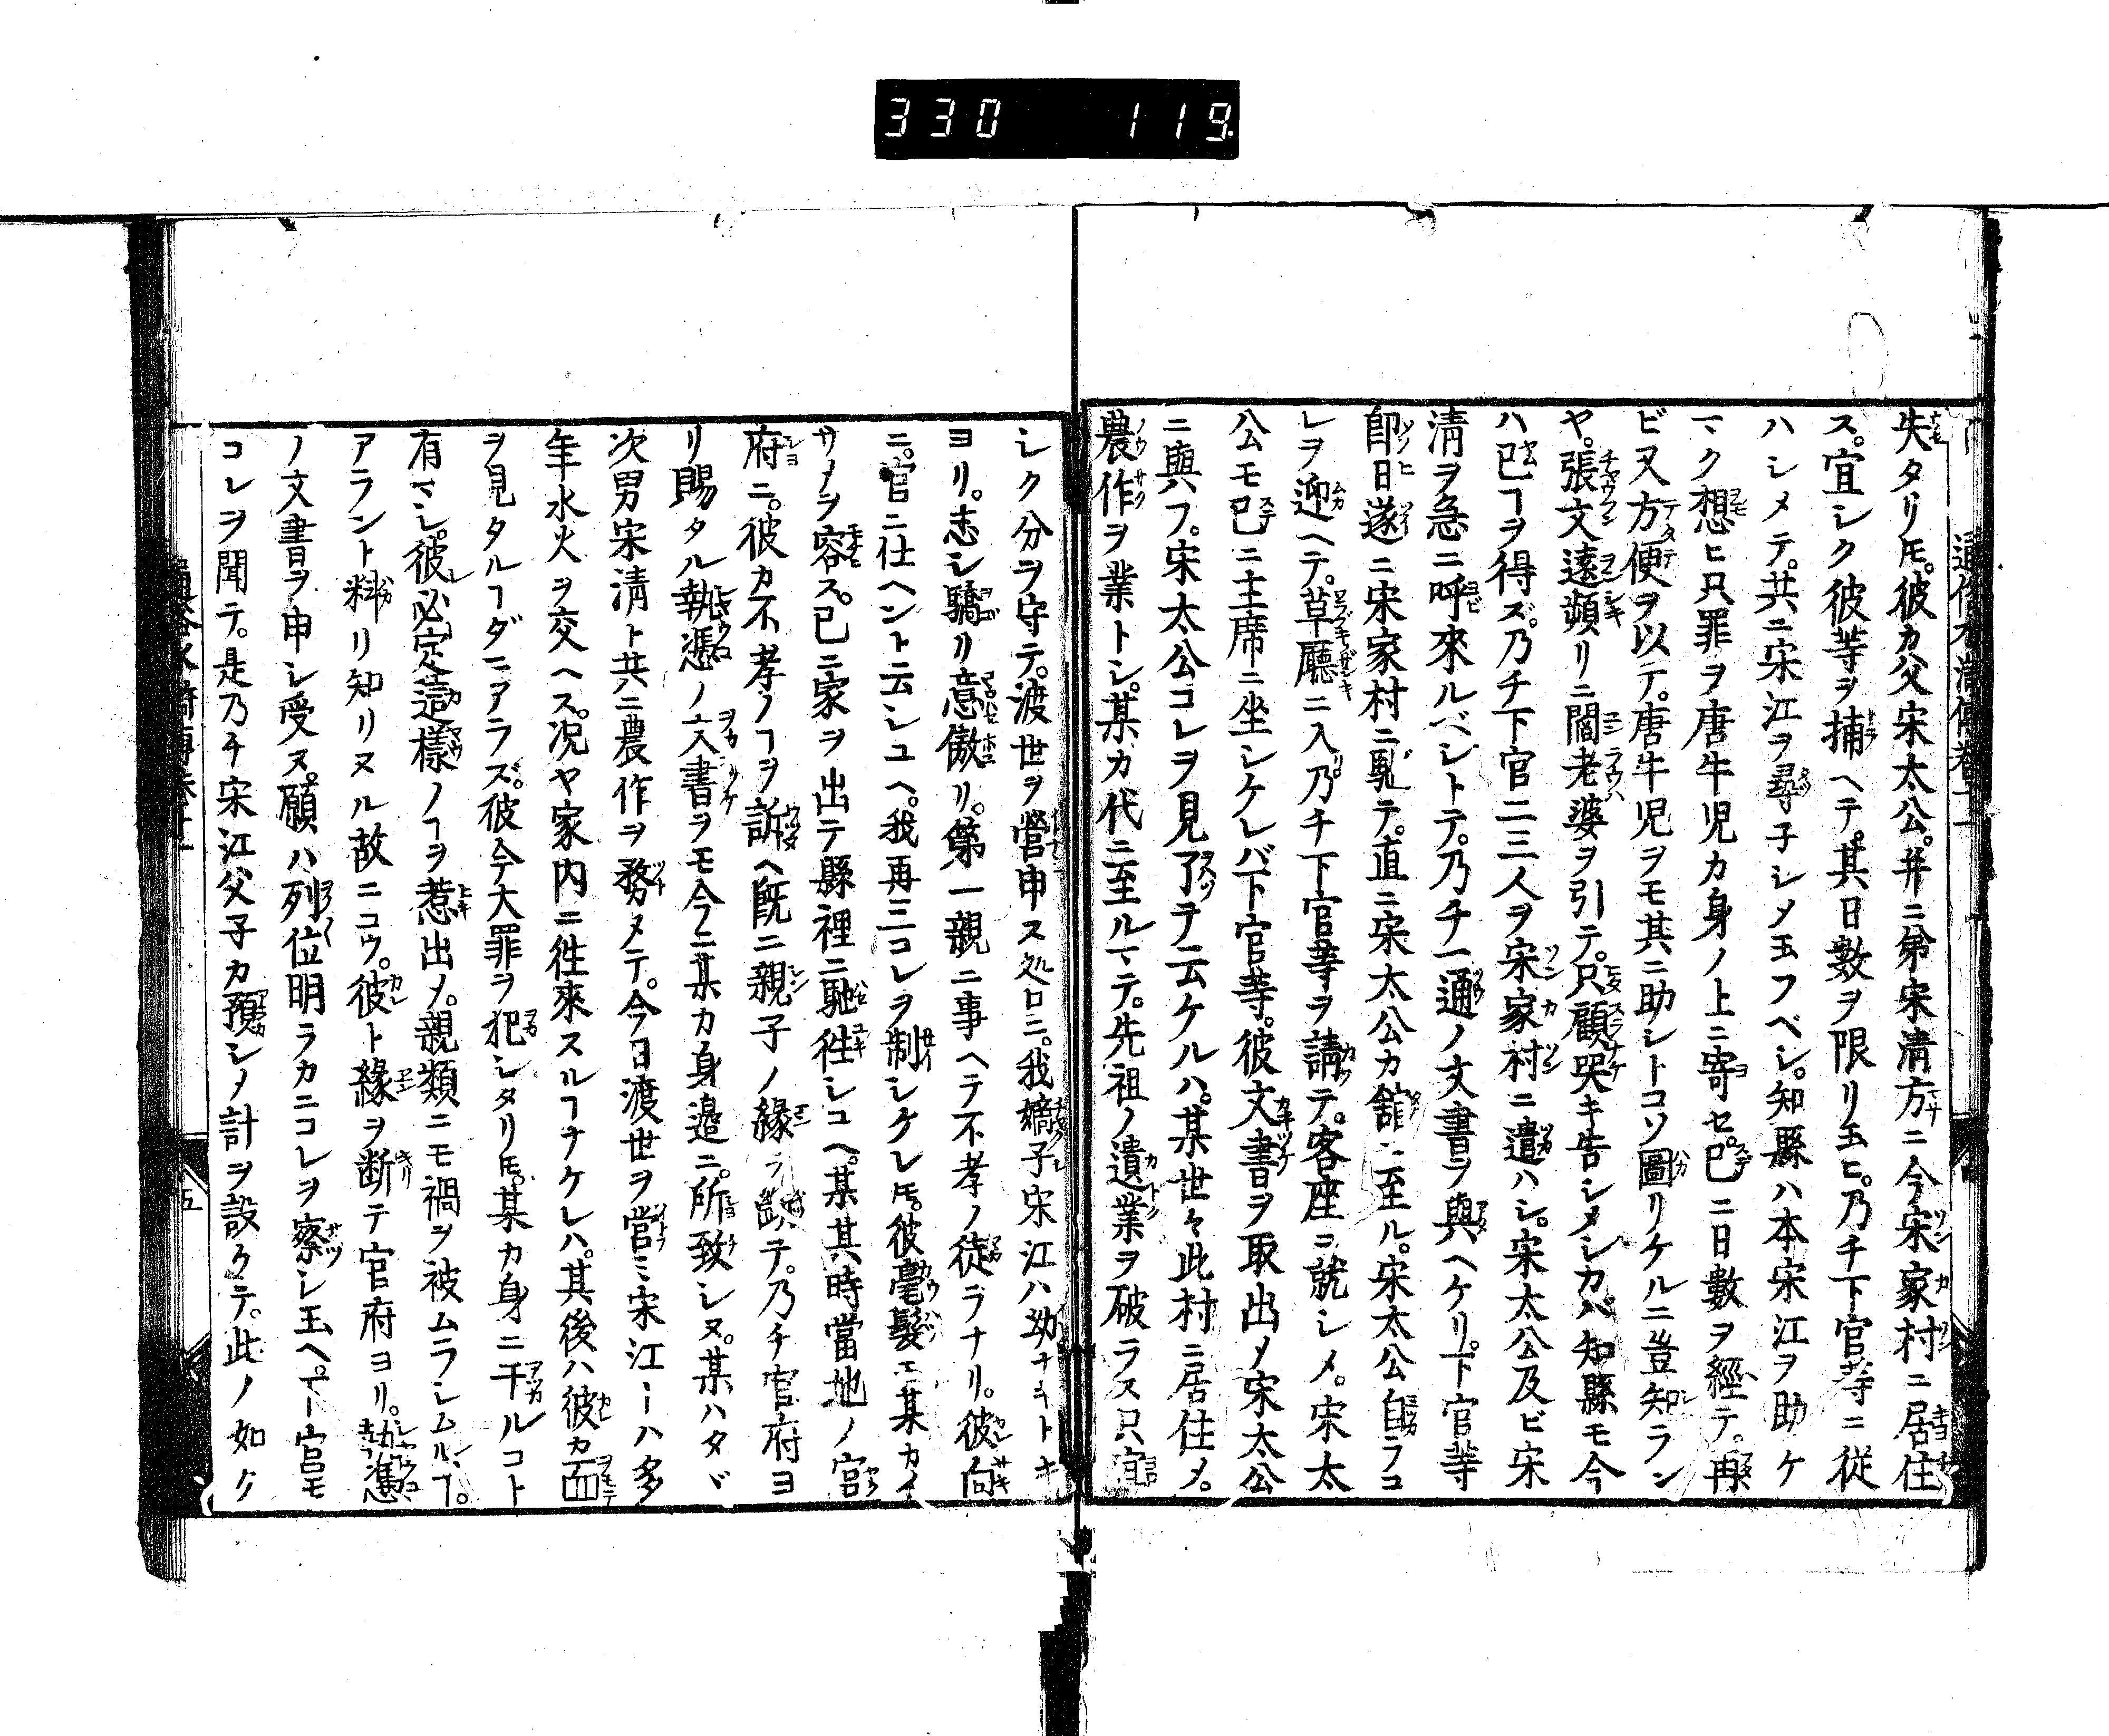 330 119
失タリ𪜈。彼カ父宋太公。并ニ弟宋淸方ニ今宋家村ニ居住
ス。宜シク彼等ヲ捕ヘテ。其日數ヲ限リ玉ヒ。乃チ下官等ニ從
ハシメテ。共ニ宋江ヲ尋子シメ玉フベシ。知縣ハ本宋江ヲ助ケ
マク想ヒ只罪ヲ唐牛児カ身ノ上ニ寄セ。已ニ日數ヲ經テ。再
ビ又方便ヲ以テ。唐牛児ヲモ其ニ助シトコソ圖リケルニ豈知ラン
ヤ。張文遠頻リニ閻老婆ヲ引テ。只顧哭キ告シメシカバ知縣モ今
ハ已ヿヲ得ズ。乃チ下官二三人ヲ宋家村ニ遣ハシ。宋太公及ビ宋
淸ヲ急ニ呼來ルベシトテ。乃チ一通ノ文書ヲ與ヘケリ。下官等
即日遂ニ宋家村ニ馳テ。直ニ宋太公カ舘ニ至ル。宋太公自ラコ
レヲ迎ヘテ。草廳ニ入乃チ下官等ヲ請テ。客座ニ就シメ。宋太
公モ已ニ主席ニ坐シケレバ下官等。彼文書ヲ取出〆宋太公
ニ與フ。宋太公コレヲ見了テ云ケルハ。某世々此村ニ居住〆。
農作ヲ業トシ。某カ代ニ至ルマテ。先祖ノ遺業ヲ破ラス只宜
シク分ヲ守テ。渡世ヲ營申ス処ロニ。我嫡子宋江ハ幼ナキトキ
ヨリ。志シ驕リ意傲リ。第一親ニ事ヘテ不孝ノ徒ラナリ。彼向
ニ。官ニ仕ヘント云シユヘ。我再三コレヲ制シケレ𪜈。彼毫髮モ某カイ
サメヲ容ス。已ニ家ヲ出テ縣裡ニ馳徃シユヘ。某其時當地ノ官
府ニ。彼カ不孝ノヿヲ訴ヘ既ニ親子ノ緣ヲ斷テ。乃チ官府ヨ
リ賜タル執憑ノ文書ヲモ今ニ某カ身邉ニ。所致シヌ。某ハタヾ
次男宋淸ト共ニ農作ヲ務メテ。今日渡世ヲ營ミ宋江ーハ多
年水火ヲ交ヘス。况ヤ家内ニ徃來スルヿナケレハ。其後ハ彼カ面
ヲ見タルヿダニアラズ。彼今大罪ヲ犯シタリ𪜈。某カ身ニ干ルコト
有マシ。彼必定這樣ノヿヲ惹出〆。親類ニモ禍ヲ被ムラシムルヿ。
アラント料リ知リヌル故ニコソ。彼ト緣ヲ断テ官府ヨリ。執憑
ノ文書ヲ申シ受ヌ。願ハ列位明ラカニコレヲ察シ玉ヘ。下官モ
コレヲ聞テ。是乃チ宋江父子カ預シメ計ヲ設ケテ。此ノ如ク
五